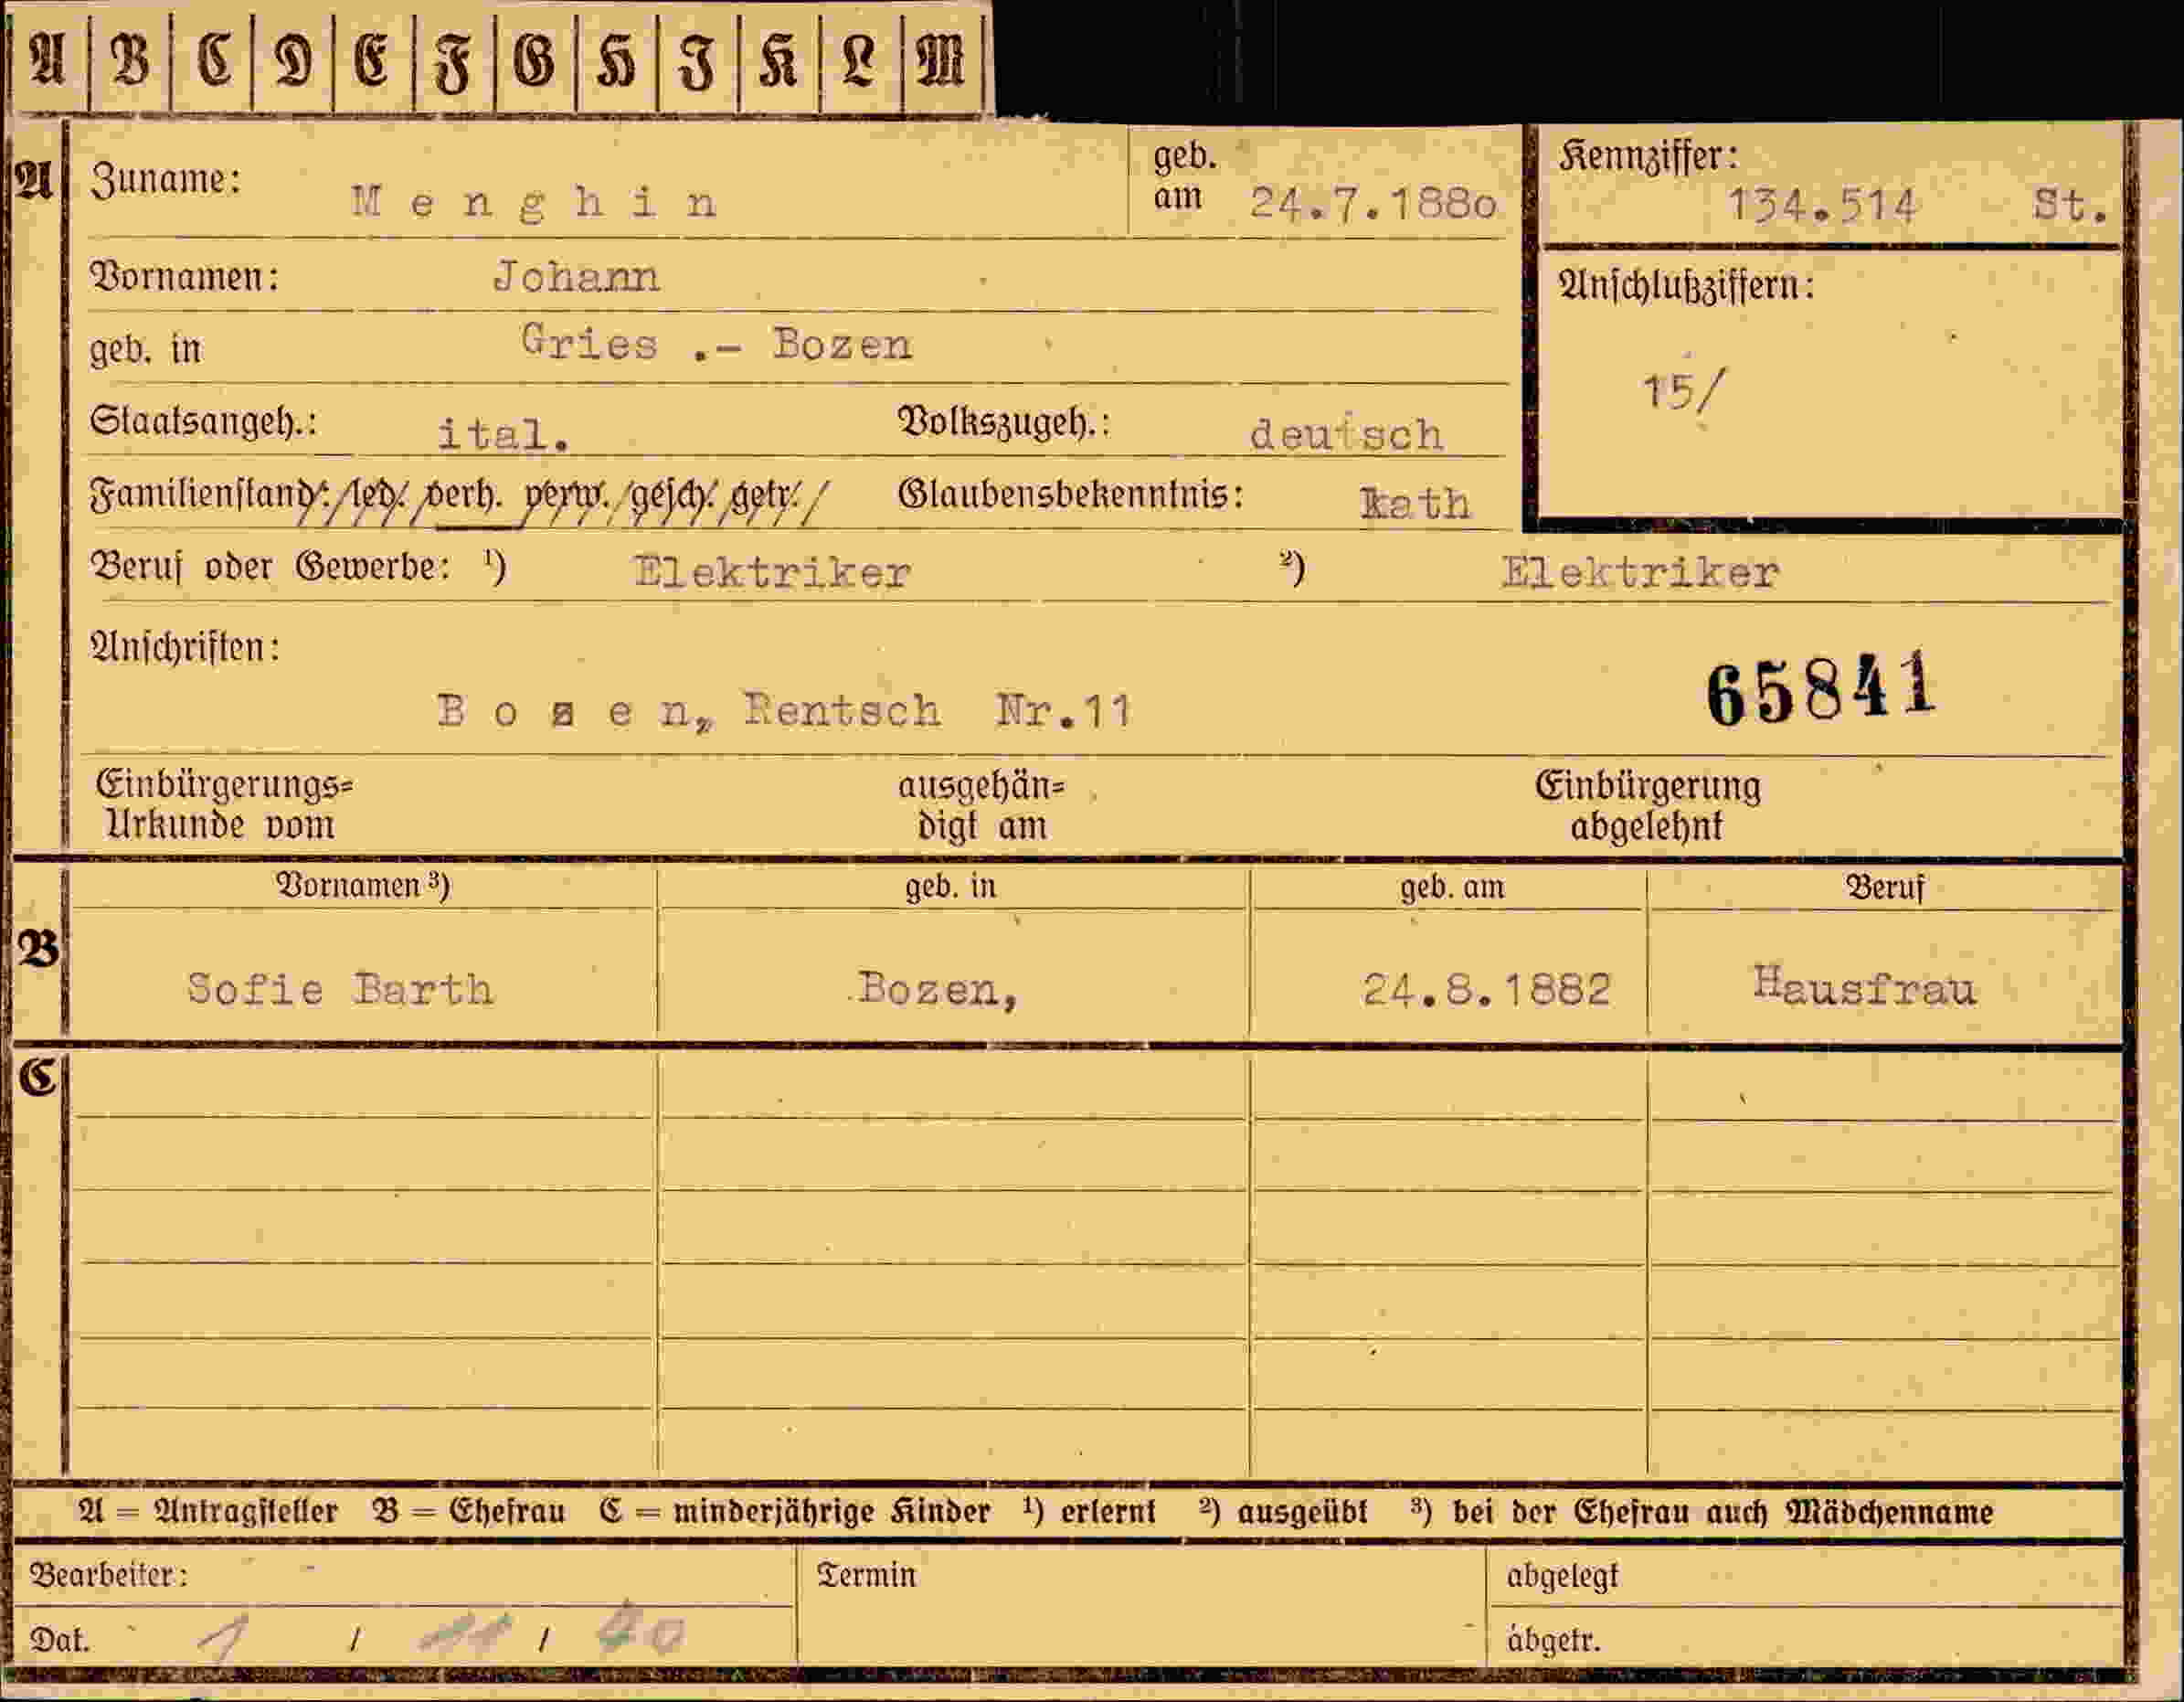 A B C D E F G H I K L M
A Zuname: Menghin geb. am 24.7.1880 Kennziffer: 134.514 St.
Vornamen: Johann Anschlußziffern:
geb. in Gries .- Bozen 15/
Staatsangeh.: ital. Volkszugeh.: deutsch
Familienstand: led. verh. verw. gesch. getr. Glaubensbekenntnis: kath
Beruf oder Gewerbe: ¹) Elektriker ²) Elektriker
Anschriften: 65841
Bozen, Rentsch Nr.11
Einbürgerungs= ausgehän= Einbürgerung
Urkunde vom digt am abgelehnt
B Vornamen ³) geb. in geb. am Beruf
Sofie Barth Bozen, 24.8.1882 Hausfrau
C
A = Antragsteller B = Ehefrau C = minderjährige Kinder ¹) erlernt ²) ausgeübt ³) bei der Ehefrau auch Mädchenname
Bearbeiter: Termin abgelegt
Dat. 1 / 11 / 40 abgetr.